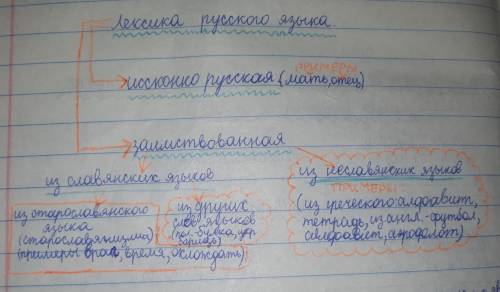 Лексика русского языка.
ПРИМЕРЫ
исконно русская (мать, отец)
заимствованная
из славянских языков
из неславянских языков
ПРИМЕРЫ
(из греческого: алфавит,
тетрадь, из англ.-футбол,
алфавит,
из старославянского
языка
(старославянизмы)
(примеры враг, время, охлаждать)
из других
слав. языков
(пол.-булка, укр
борищ)